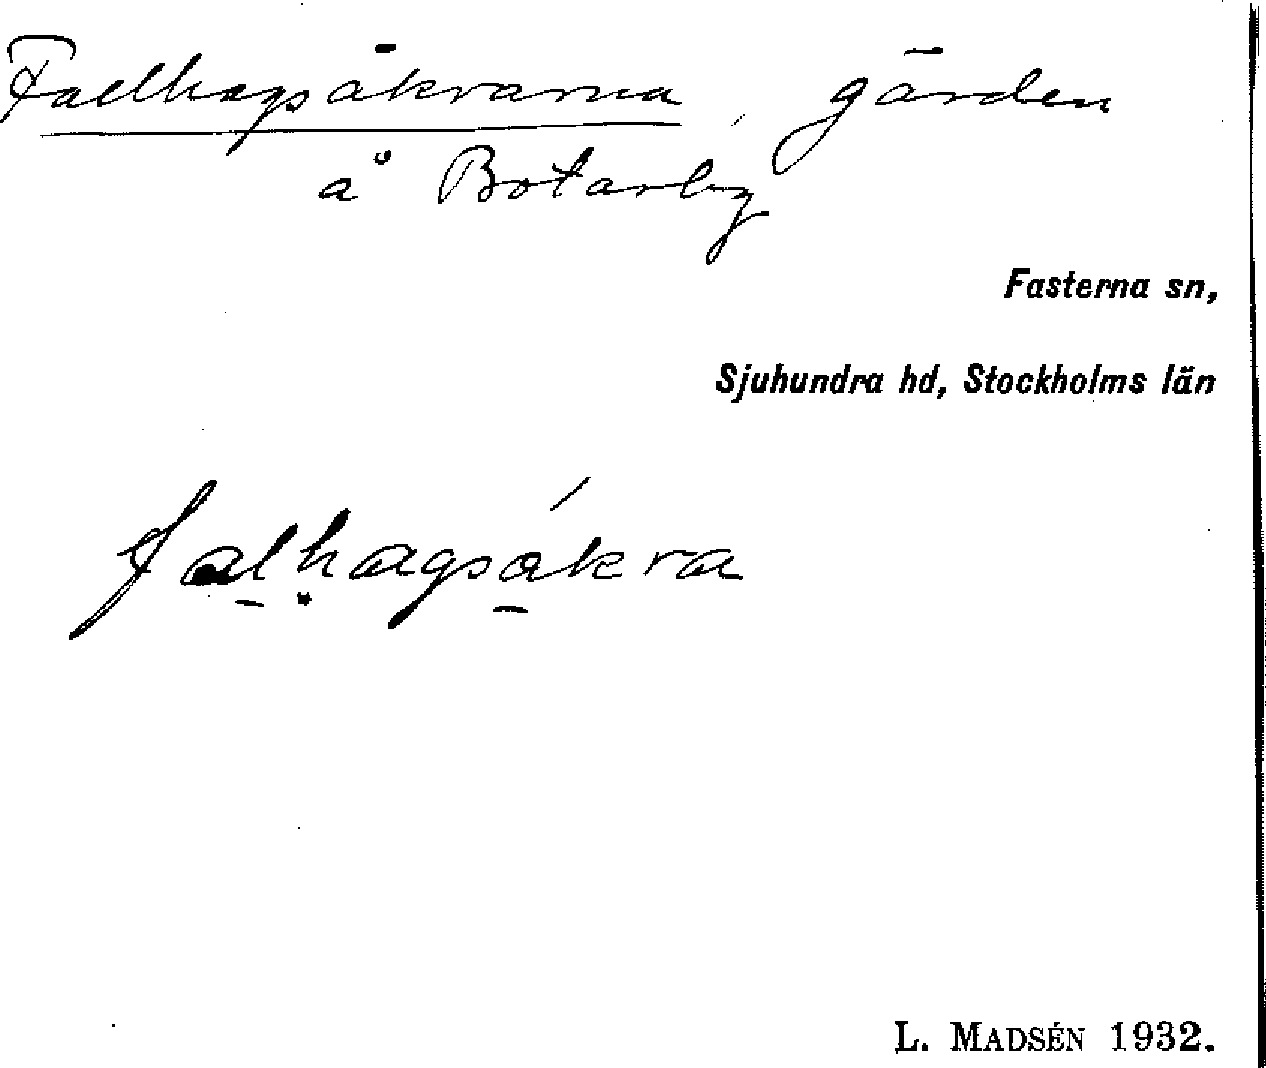 Fallhagsåkrarna, gärden
å Botarby
Fasterna sn,
Sjuhundra hd, Stockholms län
falhagsákra
L. MADSÉN 1932.